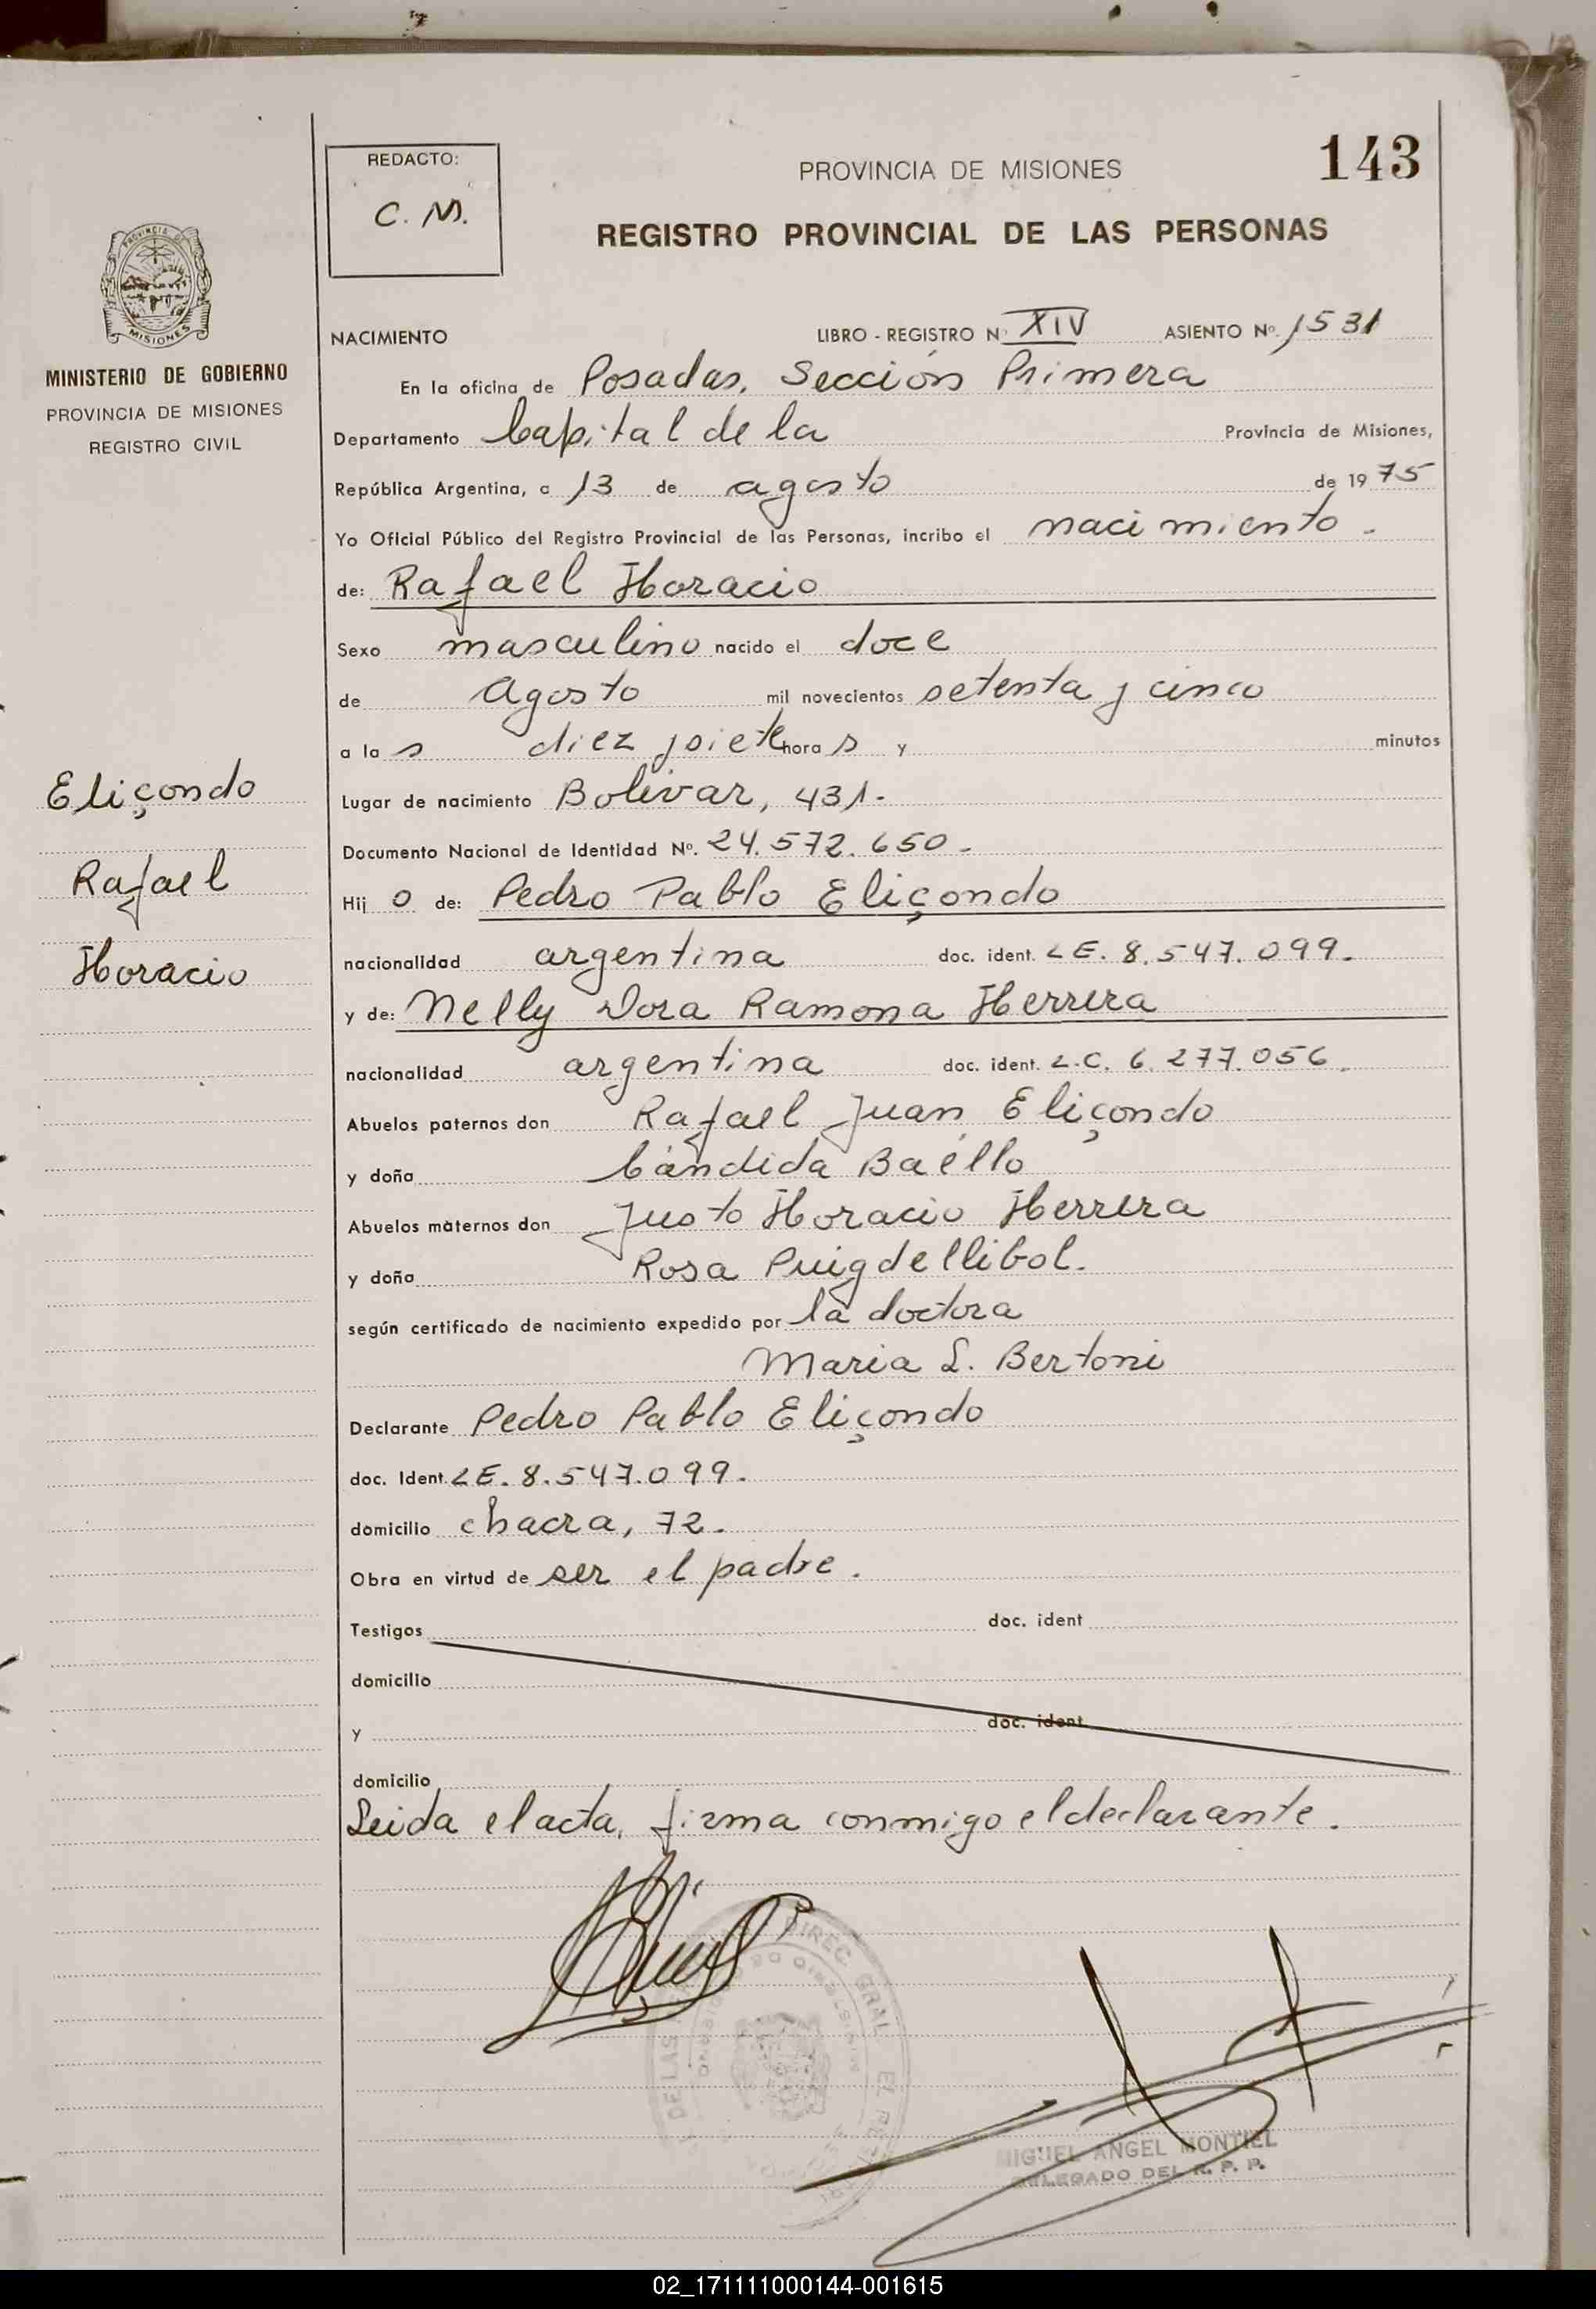 REDACTO:
C. M.
PROVINCIA DE MISIONES
143
REGISTRO PROVINCIAL DE LAS PERSONAS
PROVINCIA DE
MISIONES
MINISTERIO DE GOBIERNO
PROVINCIA DE MISIONES
REGISTRO CIVIL
NACIMIENTO LIBRO - REGISTRO N° XIV ASIENTO Nº. 1531
En la oficina de Posadas, Sección Primera
Departamento Capital de la Provincia de Misiones,
República Argentina, a 13 de agosto de 1975
Yo Oficial Público del Registro Provincial de las Personas, incribo el nacimiento.
de: Rafael Horacio
Sexo masculino nacido el doce
de Agosto mil novecientos setenta y cinco
a la s diez y siete hora s y minutos
Eliçondo
Rafael
Horacio
Lugar de nacimiento Bolivar, 431.
Documento Nacional de Identidad Nº. 24.572.650.
Hij o de: Pedro Pablo Eliçondo
nacionalidad argentina doc. ident. LE. 8.547.099.
y de: Nelly Dora Ramona Herrera
nacionalidad argentina doc. ident. L.C. 6.277.056.
Abuelos paternos don Rafael Juan Eliçondo
y doña Cándida Baéllo
Abuelos maternos don Justo Horacio Herrera
y doña Rosa Puigdellibol.
según certificado de nacimiento expedido por la doctora
Maria L. Bertoni
Declarante Pedro Pablo Eliçondo
doc. Ident. LE. 8.547.099.
domicilio chacra, 72.
Obra en virtud de ser el padre.
Testigos doc. ident
domicilio
y doc. ident
domicilio
Leida el acta, firma conmigo el declarante.
DIREC GRAL
DE LAS
MIGUEL ANGEL MONTIEL
DELEGADO DEL R. P. P.
02_171111000144-001615